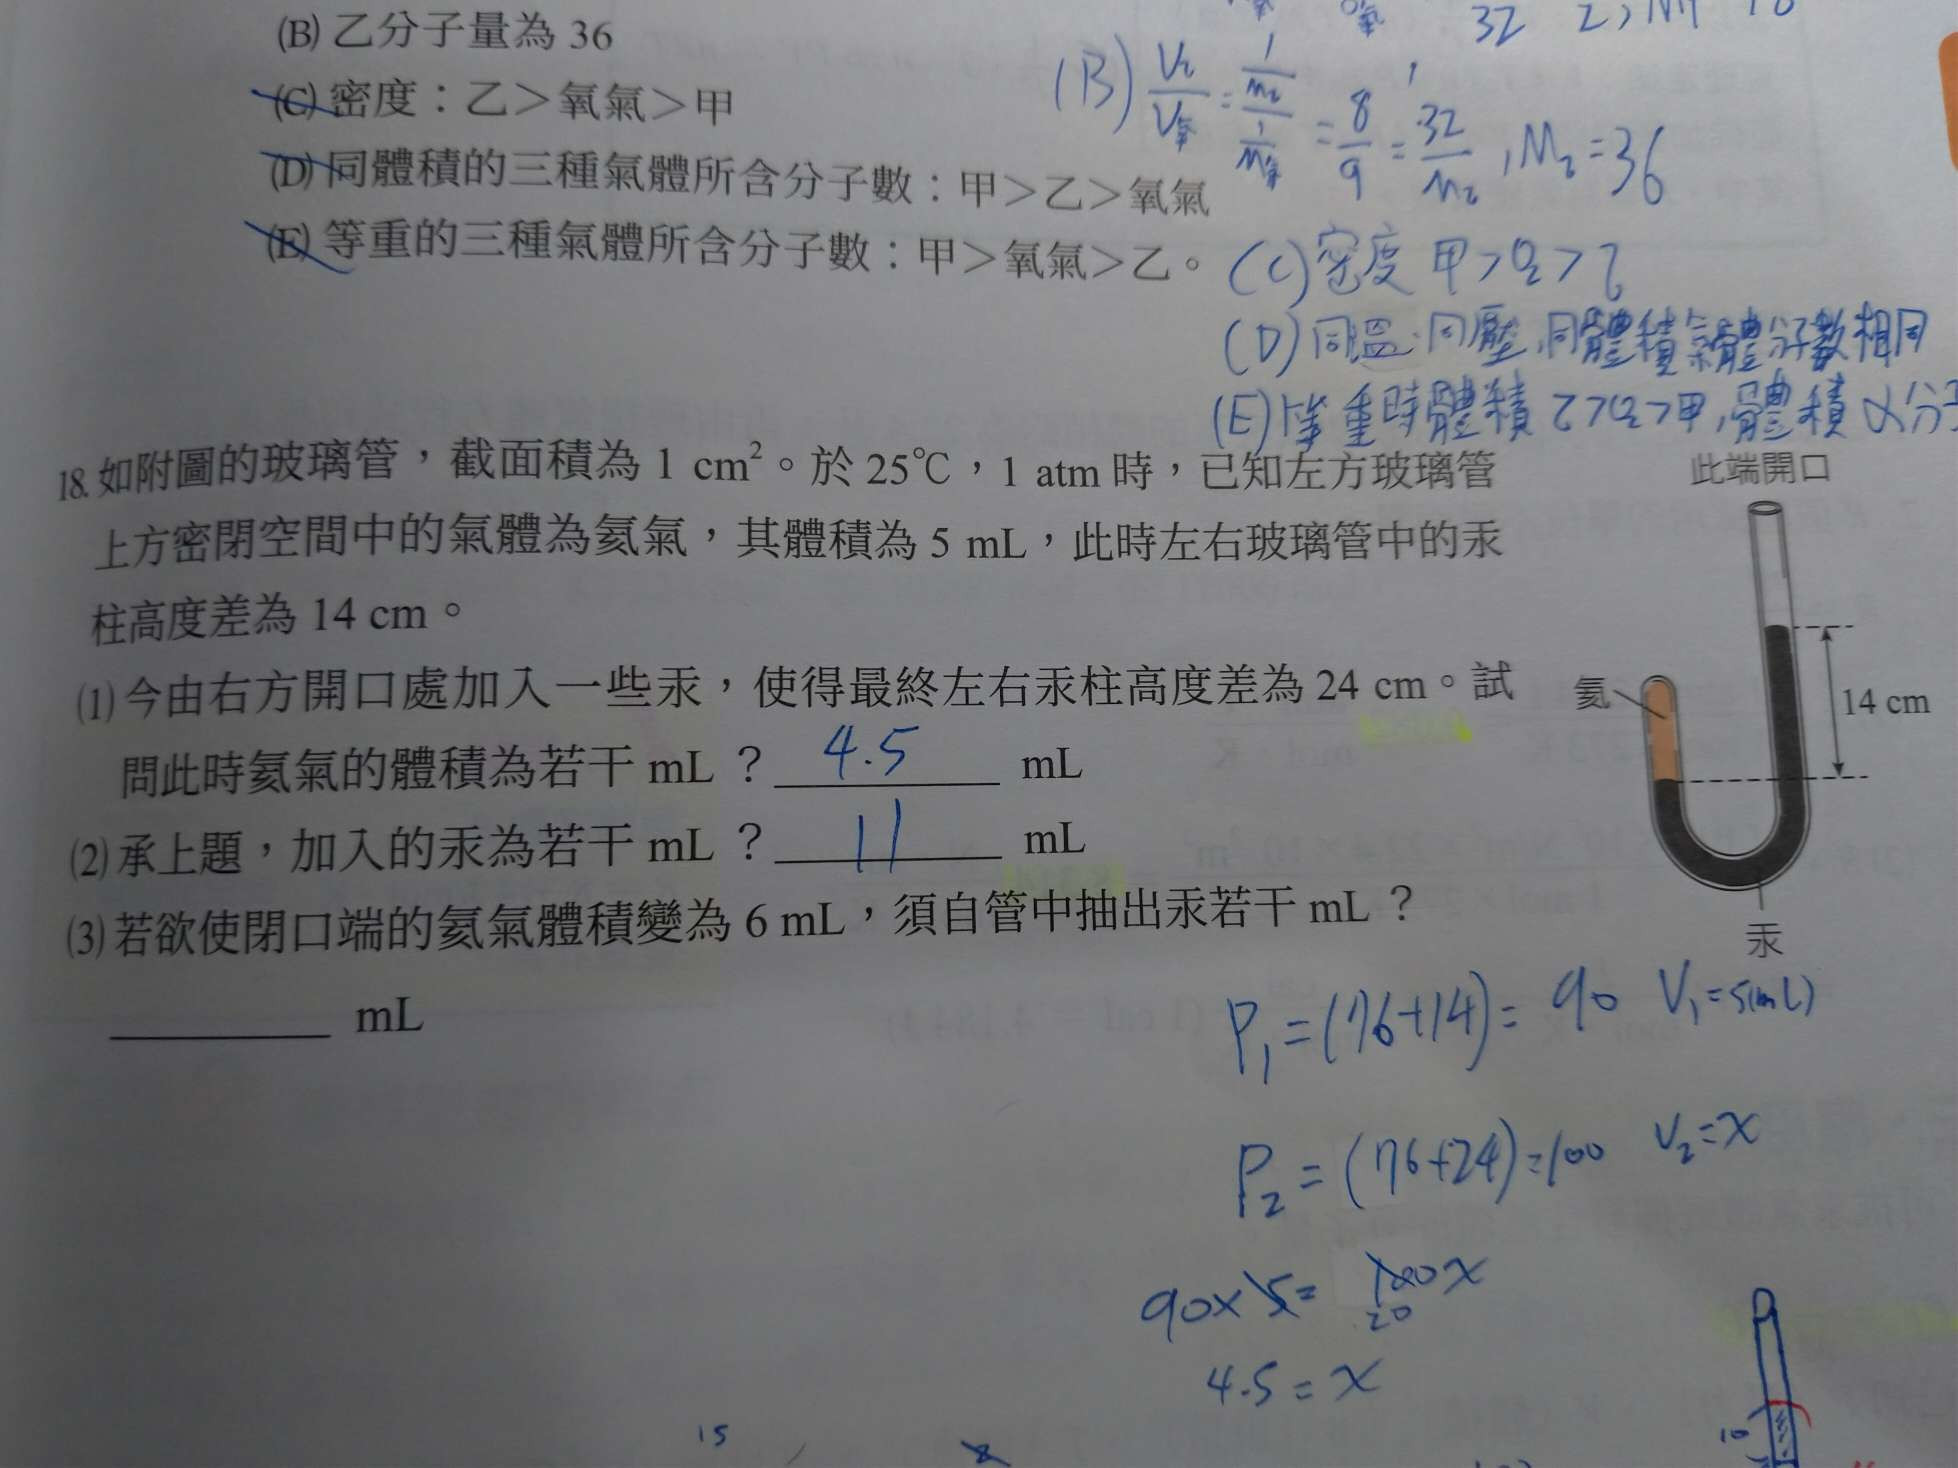 (B) 乙分子量為 36
(C) 密度：乙＞氧氣＞甲
(D) 同體積的三種氣體所含分子數：甲＞乙＞氧氣
(E) 等重的三種氣體所含分子數：甲＞氧氣＞乙。
32
(B) V乙/V氧 = (1/M乙)/(1/M氧) = 8/9 = 32/M乙 , M乙 = 36
(C) 密度 甲>O2>乙
(D) 同溫.同壓,同體積氣體分子數相同
重時體積 乙>O2>甲,體積
18. 如附圖的玻璃管，截面積為 1 cm²。於 25℃，1 atm 時，已知左方玻璃管
上方密閉空間中的氣體為氦氣，其體積為 5 mL，此時左右玻璃管中的汞
柱高度差為 14 cm。
(1) 今由右方開口處加入一些汞，使得最終左右汞柱高度差為 24 cm。試
問此時氦氣的體積為若干 mL ？ 4.5 mL
(2) 承上題，加入的汞為若干 mL ？ 11 mL
(3) 若欲使閉口端的氦氣體積變為 6 mL，須自管中抽出汞若干 mL ？
mL
此端開口
氦
14 cm
汞
P1 = (76+14) = 90 V1 = 5(mL)
P2 = (76+24) = 100 V2 = x
90 x 5 = 100x
20
4.5 = x
15
10